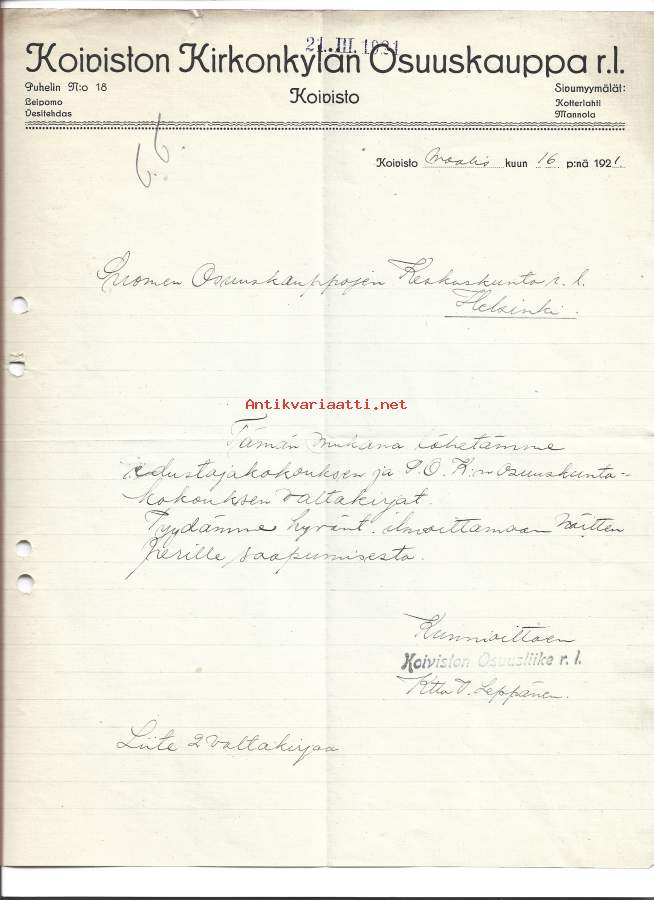 21. III. 1921
Koiviston Kirkonkylän Osuuskauppa r.l.
Puhelin N:o 18
Leipomo
Vesitehdas
Koivisto
Sivumyymälät:
Kotterlahti
Mannola
Koivisto Maalis kuun 16 p:nä 1921.
Suomen Osuuskauppojen Keskuskunta r. l.
Helsinki.
Antikvariaatti.net
Tämän mukana lähetämme
edustajakokouksen ja S.O.K:n osuuskunta-
kokouksen valtakirjat.
Pyydämme hyvänt. ilmoittamaan näitten
perille saapumisesta.
Kunnioittaen
Koiviston Osuusliike r. l.
V. Leppänen.
Liite 2 valtakirjaa